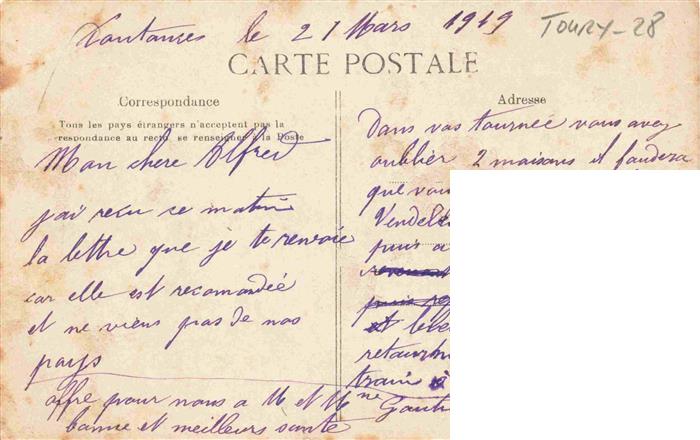 le 21 Mars 1919
TOURY-28
CARTE POSTALE
Correspondance
Tous les pays étrangers n'acceptent pas la
respondance au recto, se renseigner à la Poste
Mon chere Alfred
j'ai recu ce matin
la lettre que je te renvoie
car elle est recomandée
et ne viens pas de nos
pays
offre pour nous a M et Mme
bonne et meilleurs sante
Adresse
Dans vos tournée vous avez
oublier 2 maisons il faudera
que
puis a
puis
et
train à